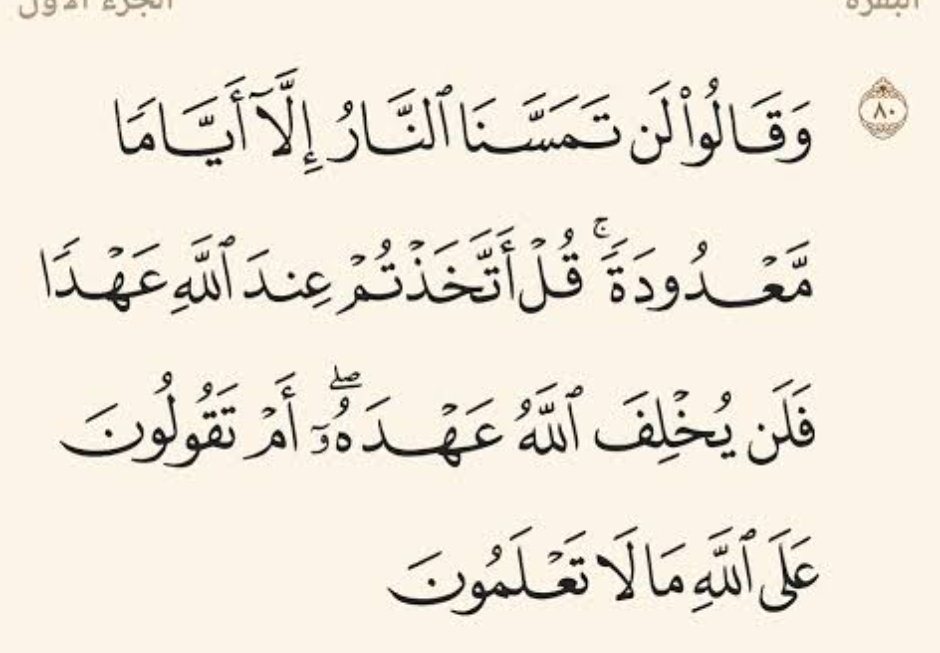 البقرة الجزء الأول
٨٠ وَقَالُوا۟ لَن تَمَسَّنَا ٱلنَّارُ إِلَّآ أَيَّامًا
مَّعْدُودَةً ۚ قُلْ أَتَّخَذْتُمْ عِندَ ٱللَّهِ عَهْدًا
فَلَن يُخْلِفَ ٱللَّهُ عَهْدَهُۥٓ ۖ أَمْ تَقُولُونَ
عَلَى ٱللَّهِ مَا لَا تَعْلَمُونَ